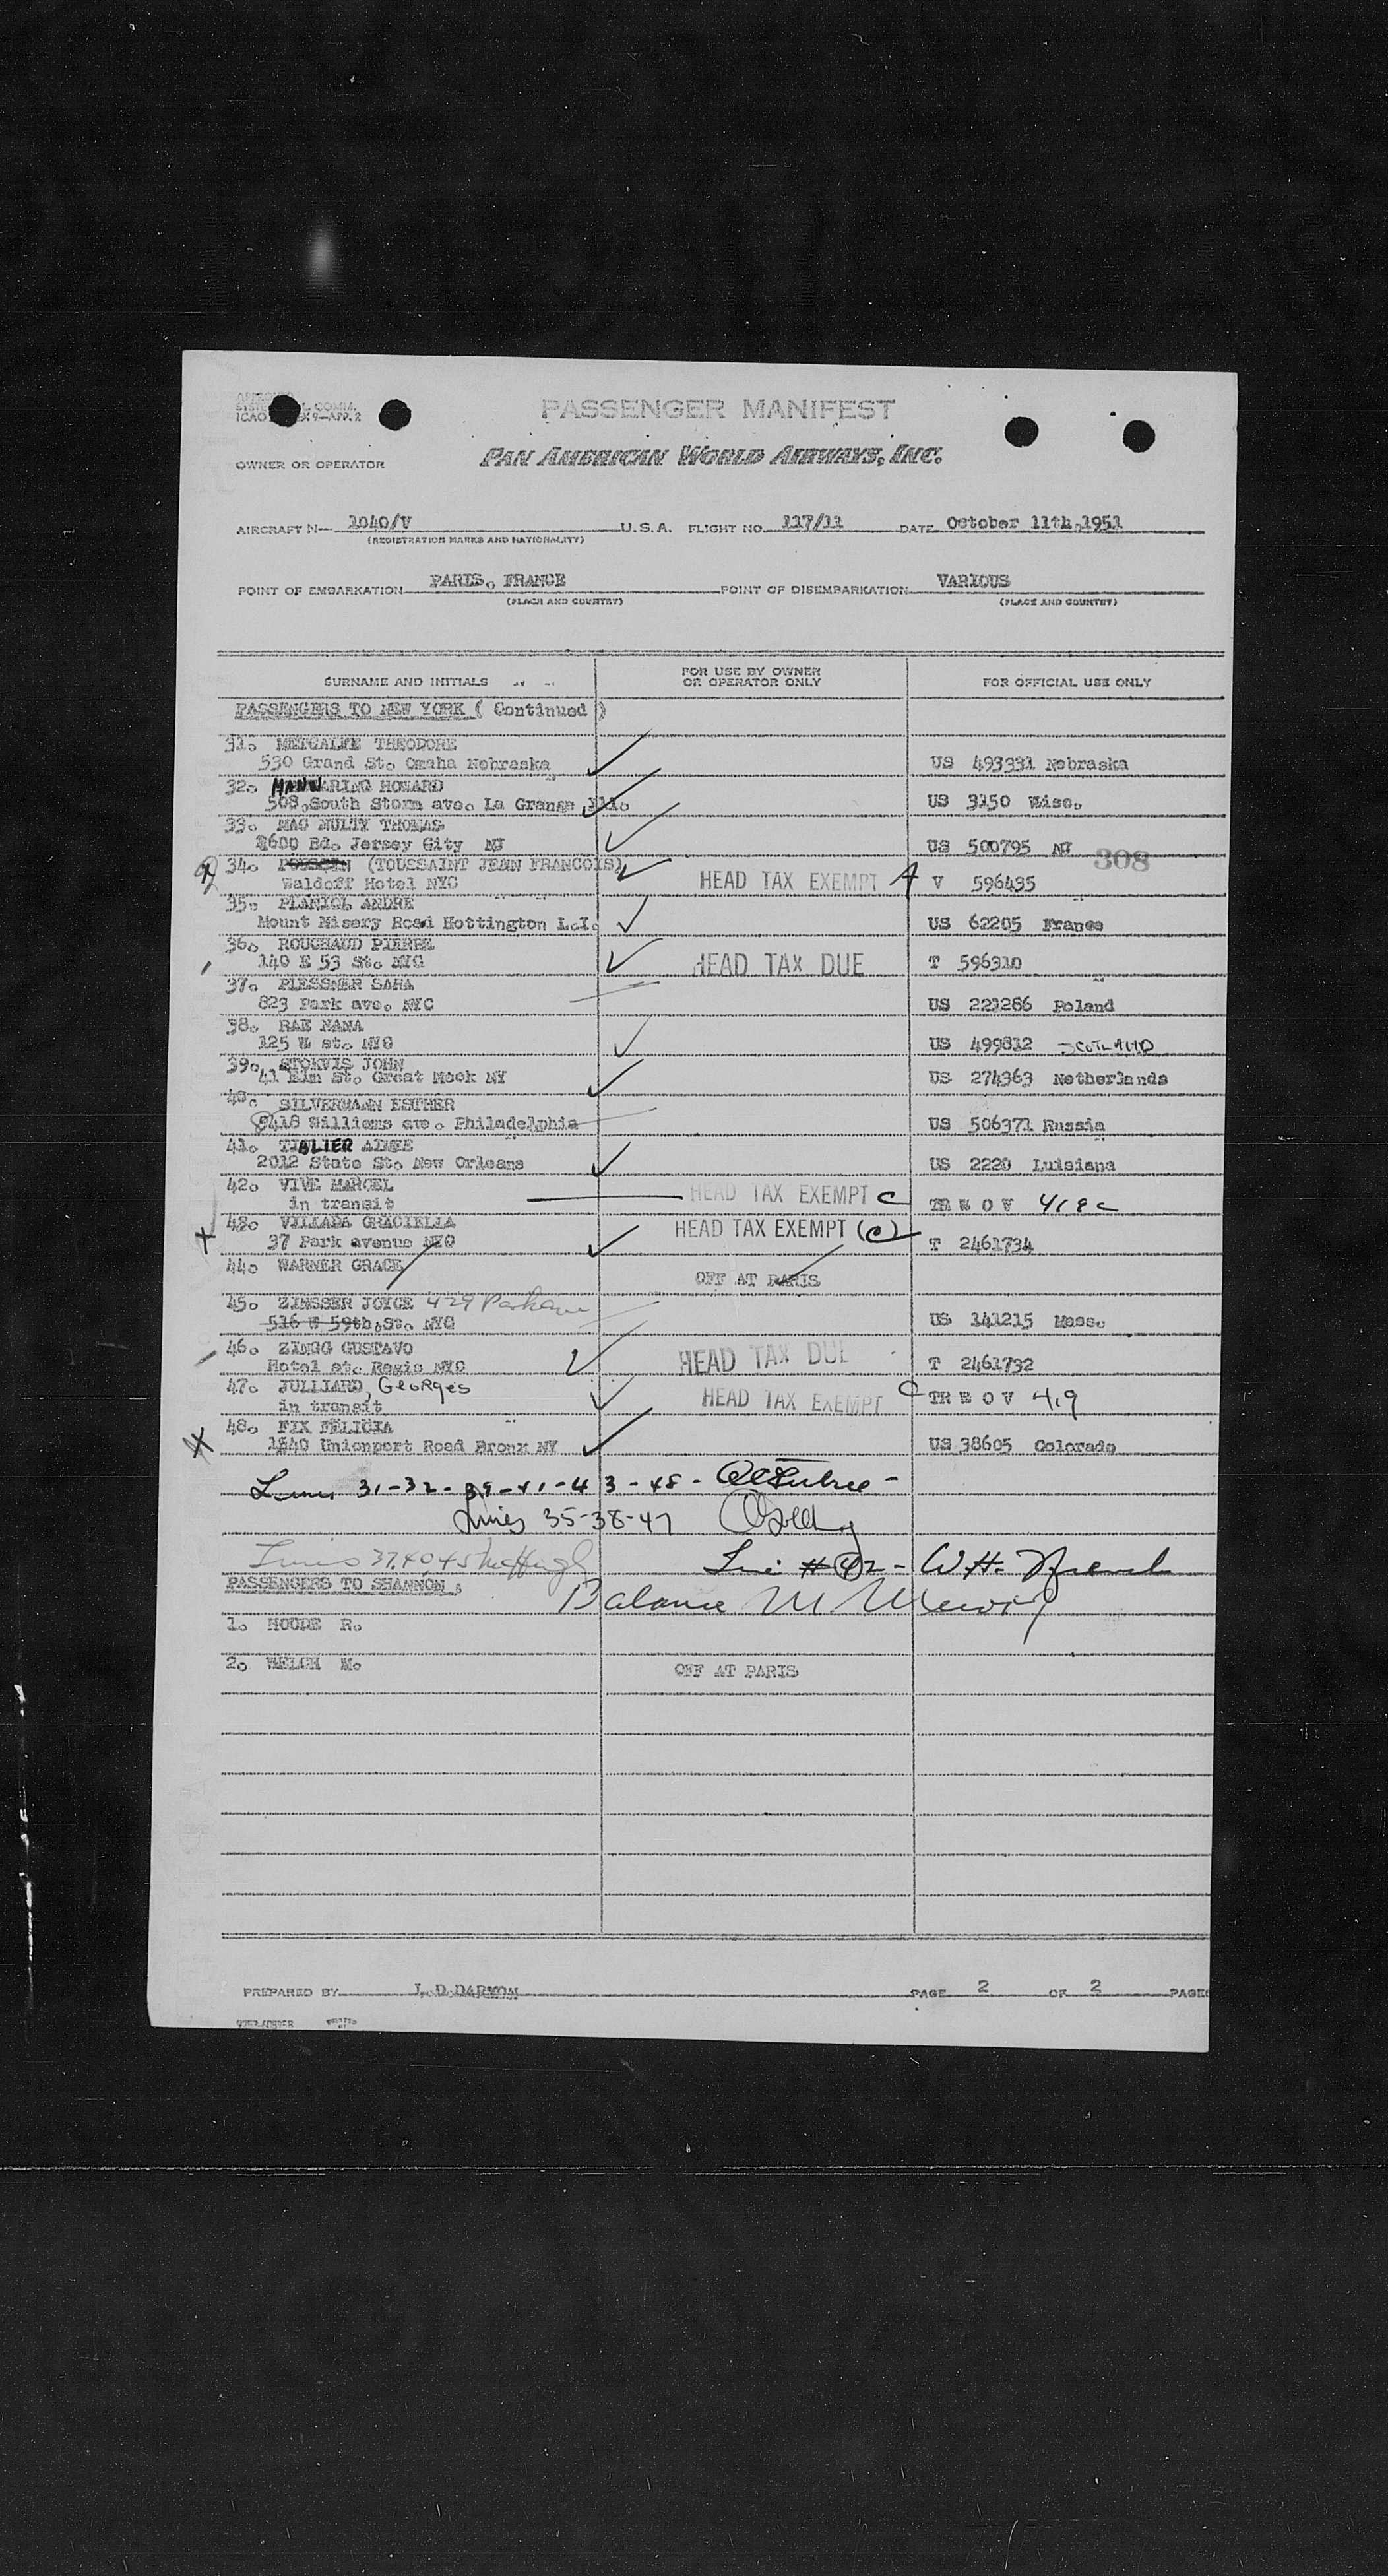 PASSENGER MANIFEST
PAN AMERICAN WORLD AIRWAYS, INC.
OWNER OR OPERATOR
AIRCRAFT N— 1040/V U.S.A. FLIGHT NO. 117/11 DATE October 11th,1951
(REGISTRATION MARKS AND NATIONALITY)
POINT OF EMBARKATION PARIS, FRANCE POINT OF DISEMBARKATION VARIOUS
(PLACE AND COUNTRY) (PLACE AND COUNTRY)
SURNAME AND INITIALS FOR USE BY OWNER OR OPERATOR ONLY FOR OFFICIAL USE ONLY
PASSENGERS TO NEW YORK ( Continued )
31. METCALFE THEODORE
530 Grand St. Omaha Nebraska US 493331 Nebraska
32. MANNARING HOWARD
508,South Storm ave. La Grange Ill. US 3150 Wisc.
33. MAC NULTY THOMAS
2600 Bd. Jersey City NJ US 500795 NJ
308
34. (TOUSSAINT JEAN FRANCOIS)
Waldoff Hotel NYC HEAD TAX EXEMPT A V 596435
35. PLANIOL ANDRE
Mount Misery Road Hottington L.I. US 62205 France
36. ROUCHAUD PIERRE
140 E 53 St. NYC HEAD TAX DUE T 596310
37. PLESSNER SARA
823 Park ave. NYC US 221286 Poland
38. RAE NANA
125 W st. NYC US 499812 SCOTLAND
39. STOKVIS JOHN
41 Elm St. Great Neck NY US 274363 Netherlands
40. SILVERMANN ESTHER
8418 Williams ave. Philadelphia US 506371 Russia
41. BLIER AIMEE
2012 State St. New Orleans US 2220 Luisiana
42. VIVE MARCEL
in transit HEAD TAX EXEMPT C TR W O V 418c
43. VILLADA GRACIELIA HEAD TAX EXEMPT (C)
37 Park avenue NYC T 2461734
44. WARNER GRACE OFF AT PARIS
45. ZINSSER JOYCE 429 Park ave
516 W 59th,St. NYC US 141215 Mass.
46. ZINGG GUSTAVO
Hotel st. Regis NYC HEAD TAX DUE T 2461732
47. JULLIARD, Georges
in transit HEAD TAX EXEMPT C TR W O V 419
48. FIX FELICIA
1540 Unionport Road Bronx NY US 38605 Colorado
Lines 31-32-39-41-43-48-
Lines 35-38-47
Lines 37.40,45
Line #42- W.H.
PASSENGERS TO SHANNON :
Balance M
1. HOUDE R.
2. WELCH M. OFF AT PARIS
PREPARED BY J. D. DARMON PAGE 2 OF 2 PAGES